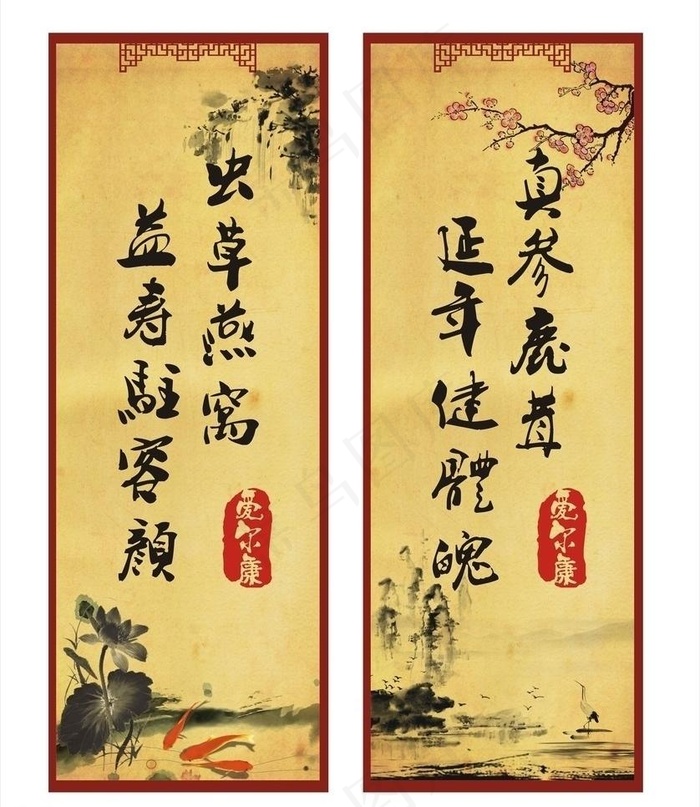 真参鹿茸
延年健體魄
爱尔康
虫草燕窝
益寿駐容顔
爱尔康